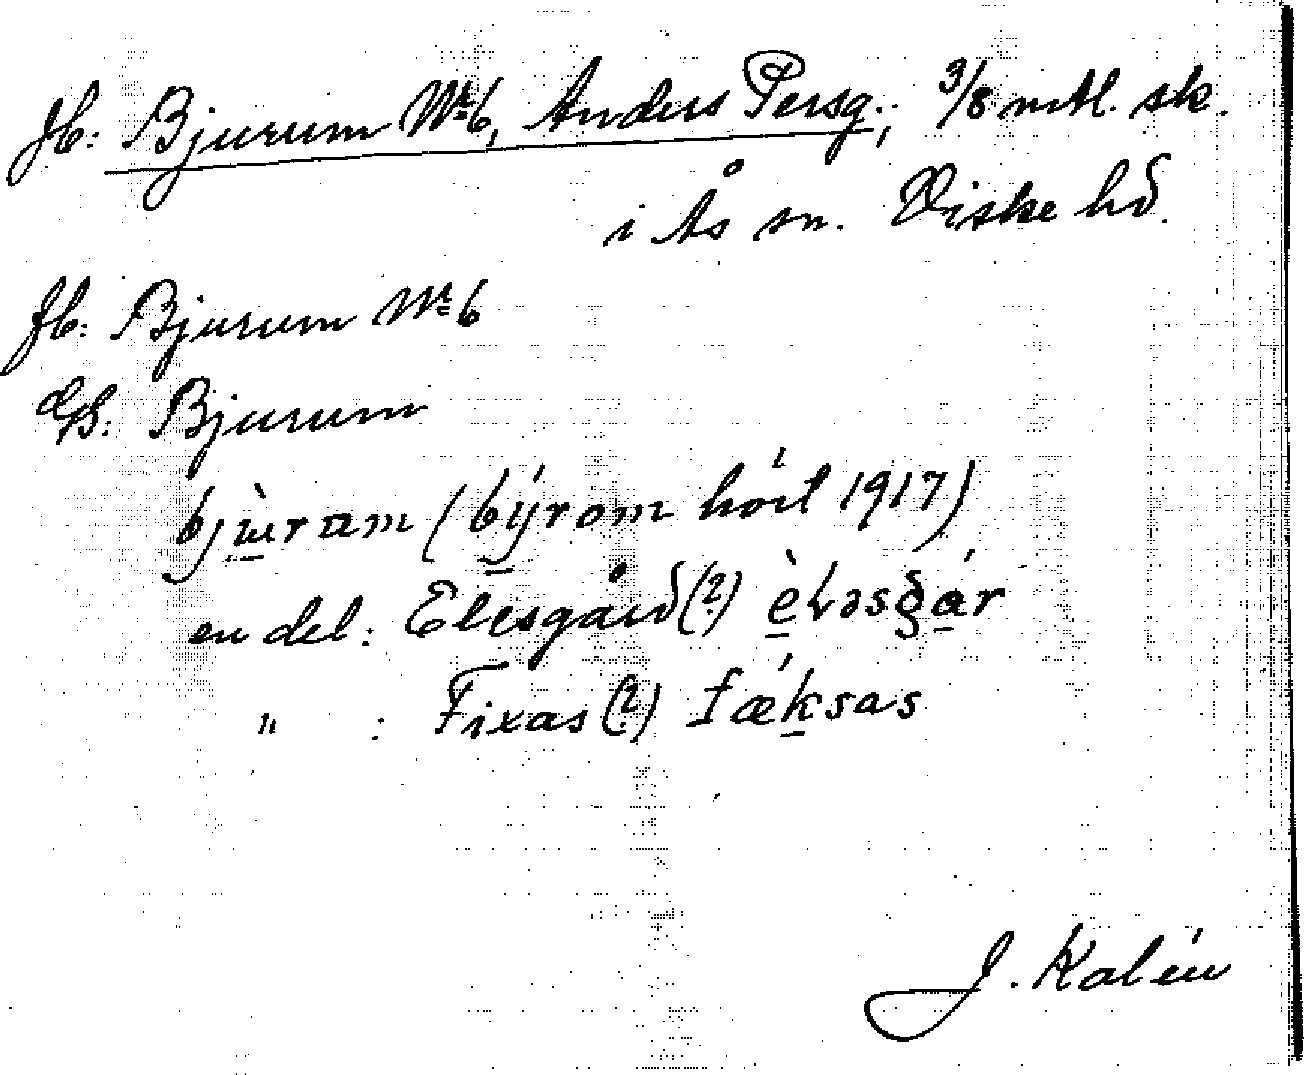 Jb: Bjurum Nr 6, Anders Persg., 3/8 mtl. sk.
i Ås sn. Viske hd.
Jb: Bjurum Nr 6
GS: Bjurum
bjùram (býrom hört 1917)
en del: Elesgård (?)
" : Fixas (?) fǽksas
J. Kalén